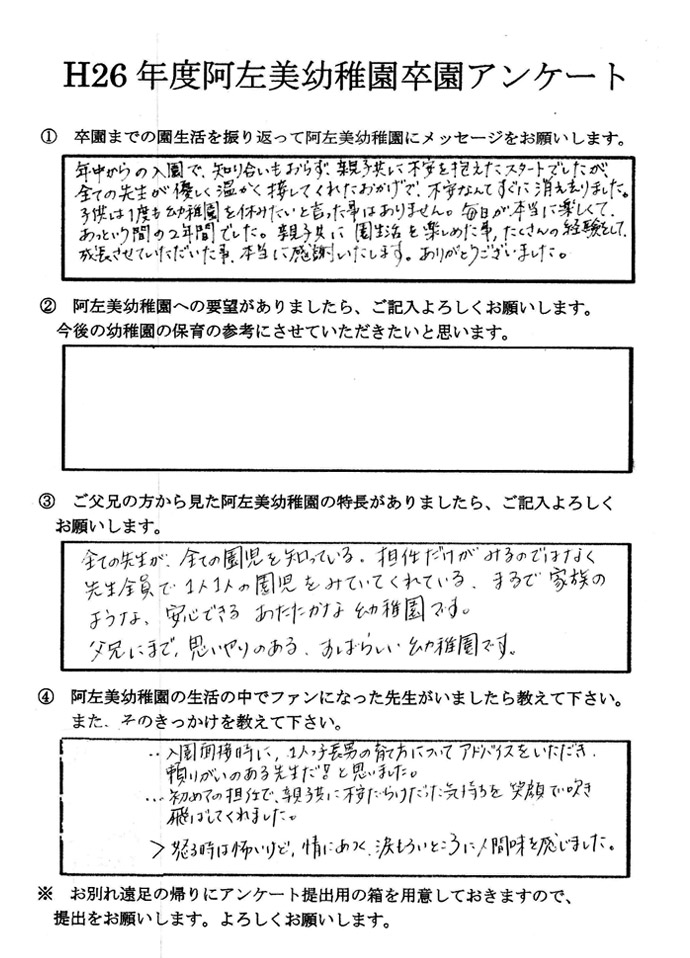 H26年度阿左美幼稚園卒園アンケート
① 卒園までの園生活を振り返って阿左美幼稚園にメッセージをお願いします。
年中からの入園で、知り合いもおらず、親子共に不安を抱えたスタートでしたが、
全ての先生が優しく温かく接してくれたおかげで、不安なんてすぐに消え去りました。
子供は1度も幼稚園を休みたいと言った事はありません。毎日が本当に楽しくて、
あっという間の2年間でした。親子共に園生活を楽しめた事,たくさんの経験をして、
成長させていただいた事、本当に感謝いたします。ありがとうございました。
② 阿左美幼稚園への要望がありましたら、ご記入よろしくお願いします。
今後の幼稚園の保育の参考にさせていただきたいと思います。
③ ご父兄の方から見た阿左美幼稚園の特長がありましたら、ご記入よろしく
お願いします。
全ての先生が、全ての園児を知っている。担任だけがみるのではなく
先生全員で1人1人の園児をみていてくれている、まるで家族の
ような、安心できるあたたかな幼稚園です。
父兄にまで,思いやりのある、すばらしい幼稚園です。
④ 阿左美幼稚園の生活の中でファンになった先生がいましたら教えて下さい。
また、そのきっかけを教えて下さい。
‥入園面接時に,1人っ子長男の育て方についてアドバイスをいただき、
頼りがいのある先生だ!と思いました。
…初めての担任で、親子共に不安だらけだった気持ちを笑顔で吹き
飛ばしてくれました。
＞怒る時は怖いけど,情にあつく、涙もろいところに人間味を感じました。
※ お別れ遠足の帰りにアンケート提出用の箱を用意しておきますので、
提出をお願いします。よろしくお願いします。